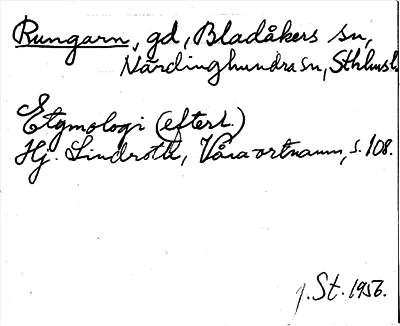 Rungarn, gd, Bladåkers sn,
Närdinghundra sn, Sthlms l.
Etymologi (efterl.)
Hj. Lindroth, Våra ortnamn, s. 108.
J. St. 1956.